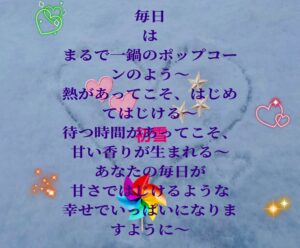 毎日
は
まるで一鍋のポップコー
ンのよう〜
熱があってこそ、はじめ
てはじける〜
待つ時間があってこそ、
初雪
甘い香りが生まれる〜
あなたの毎日が
甘さではじけるような
幸せでいっぱいになりま
すように〜